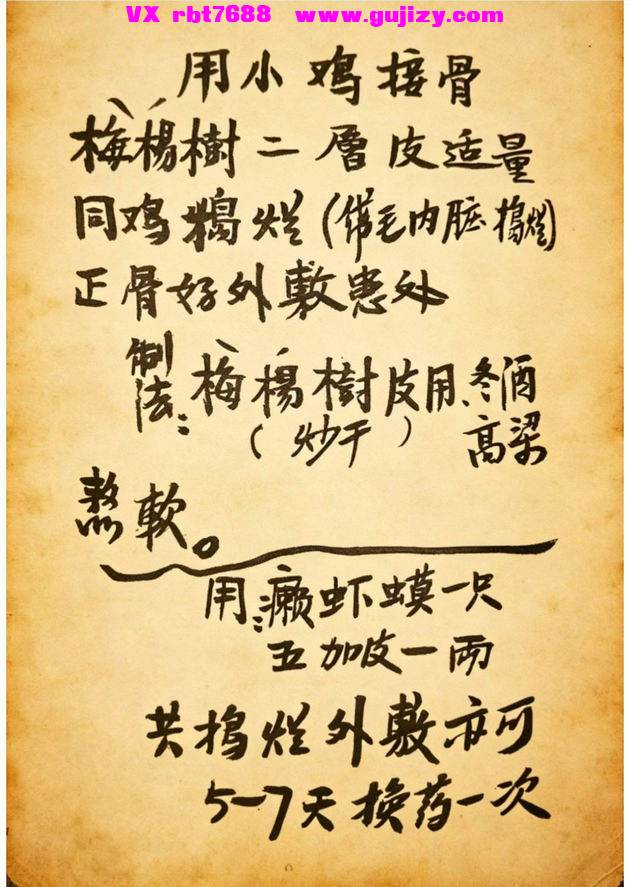 VX rbt7688 www.gujizy.com
用小鸡接骨
梅楊樹二層皮适量
同鸡搗烂(催毛内脏搗烂)
正骨好外敷患处
制法:梅楊樹皮用冬酒
(炒干) 高梁
熬軟。
用:癞虾蟆一只
五加皮一両
共搗烂外敷亦可
5-7天换药一次